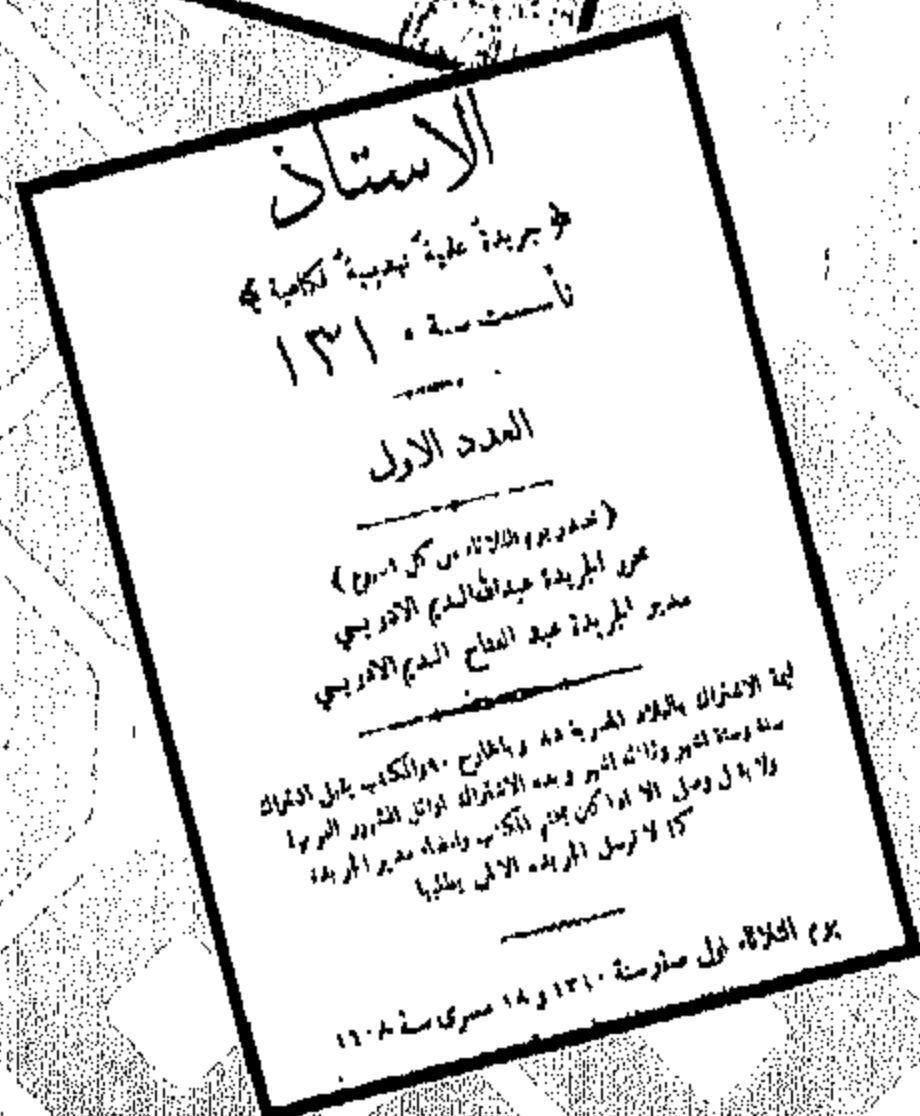 الاستاذ
﴿ جريدة علمية تهذيبية فكاهية ﴾
تأسست سنة ١٣١٠
العدد الاول
( تصدر يوم الثلاثاء من كل اسبوع )
محرر الجريدة عبدالله النديم الادريسي
مدير الجريدة عبد الفتاح النديم الادريسي
قيمة الاشتراك بالبلاد المصرية وبالخارج والمكتب يقبل اشتراك
سنة وستة اشهر وثلاثة اشهر وبدء الاشتراك اوائل الشهور العربية
ولا يقبل وصل الا اذا كان بختم المكتب وامضاء مدير الجريدة
كما لا ترسل الجريدة الا لمن يطلبها
يوم الثلاثاء اول صفر سنة ١٣١٠ و ١٨ مسرى سنة ١٦٠٨